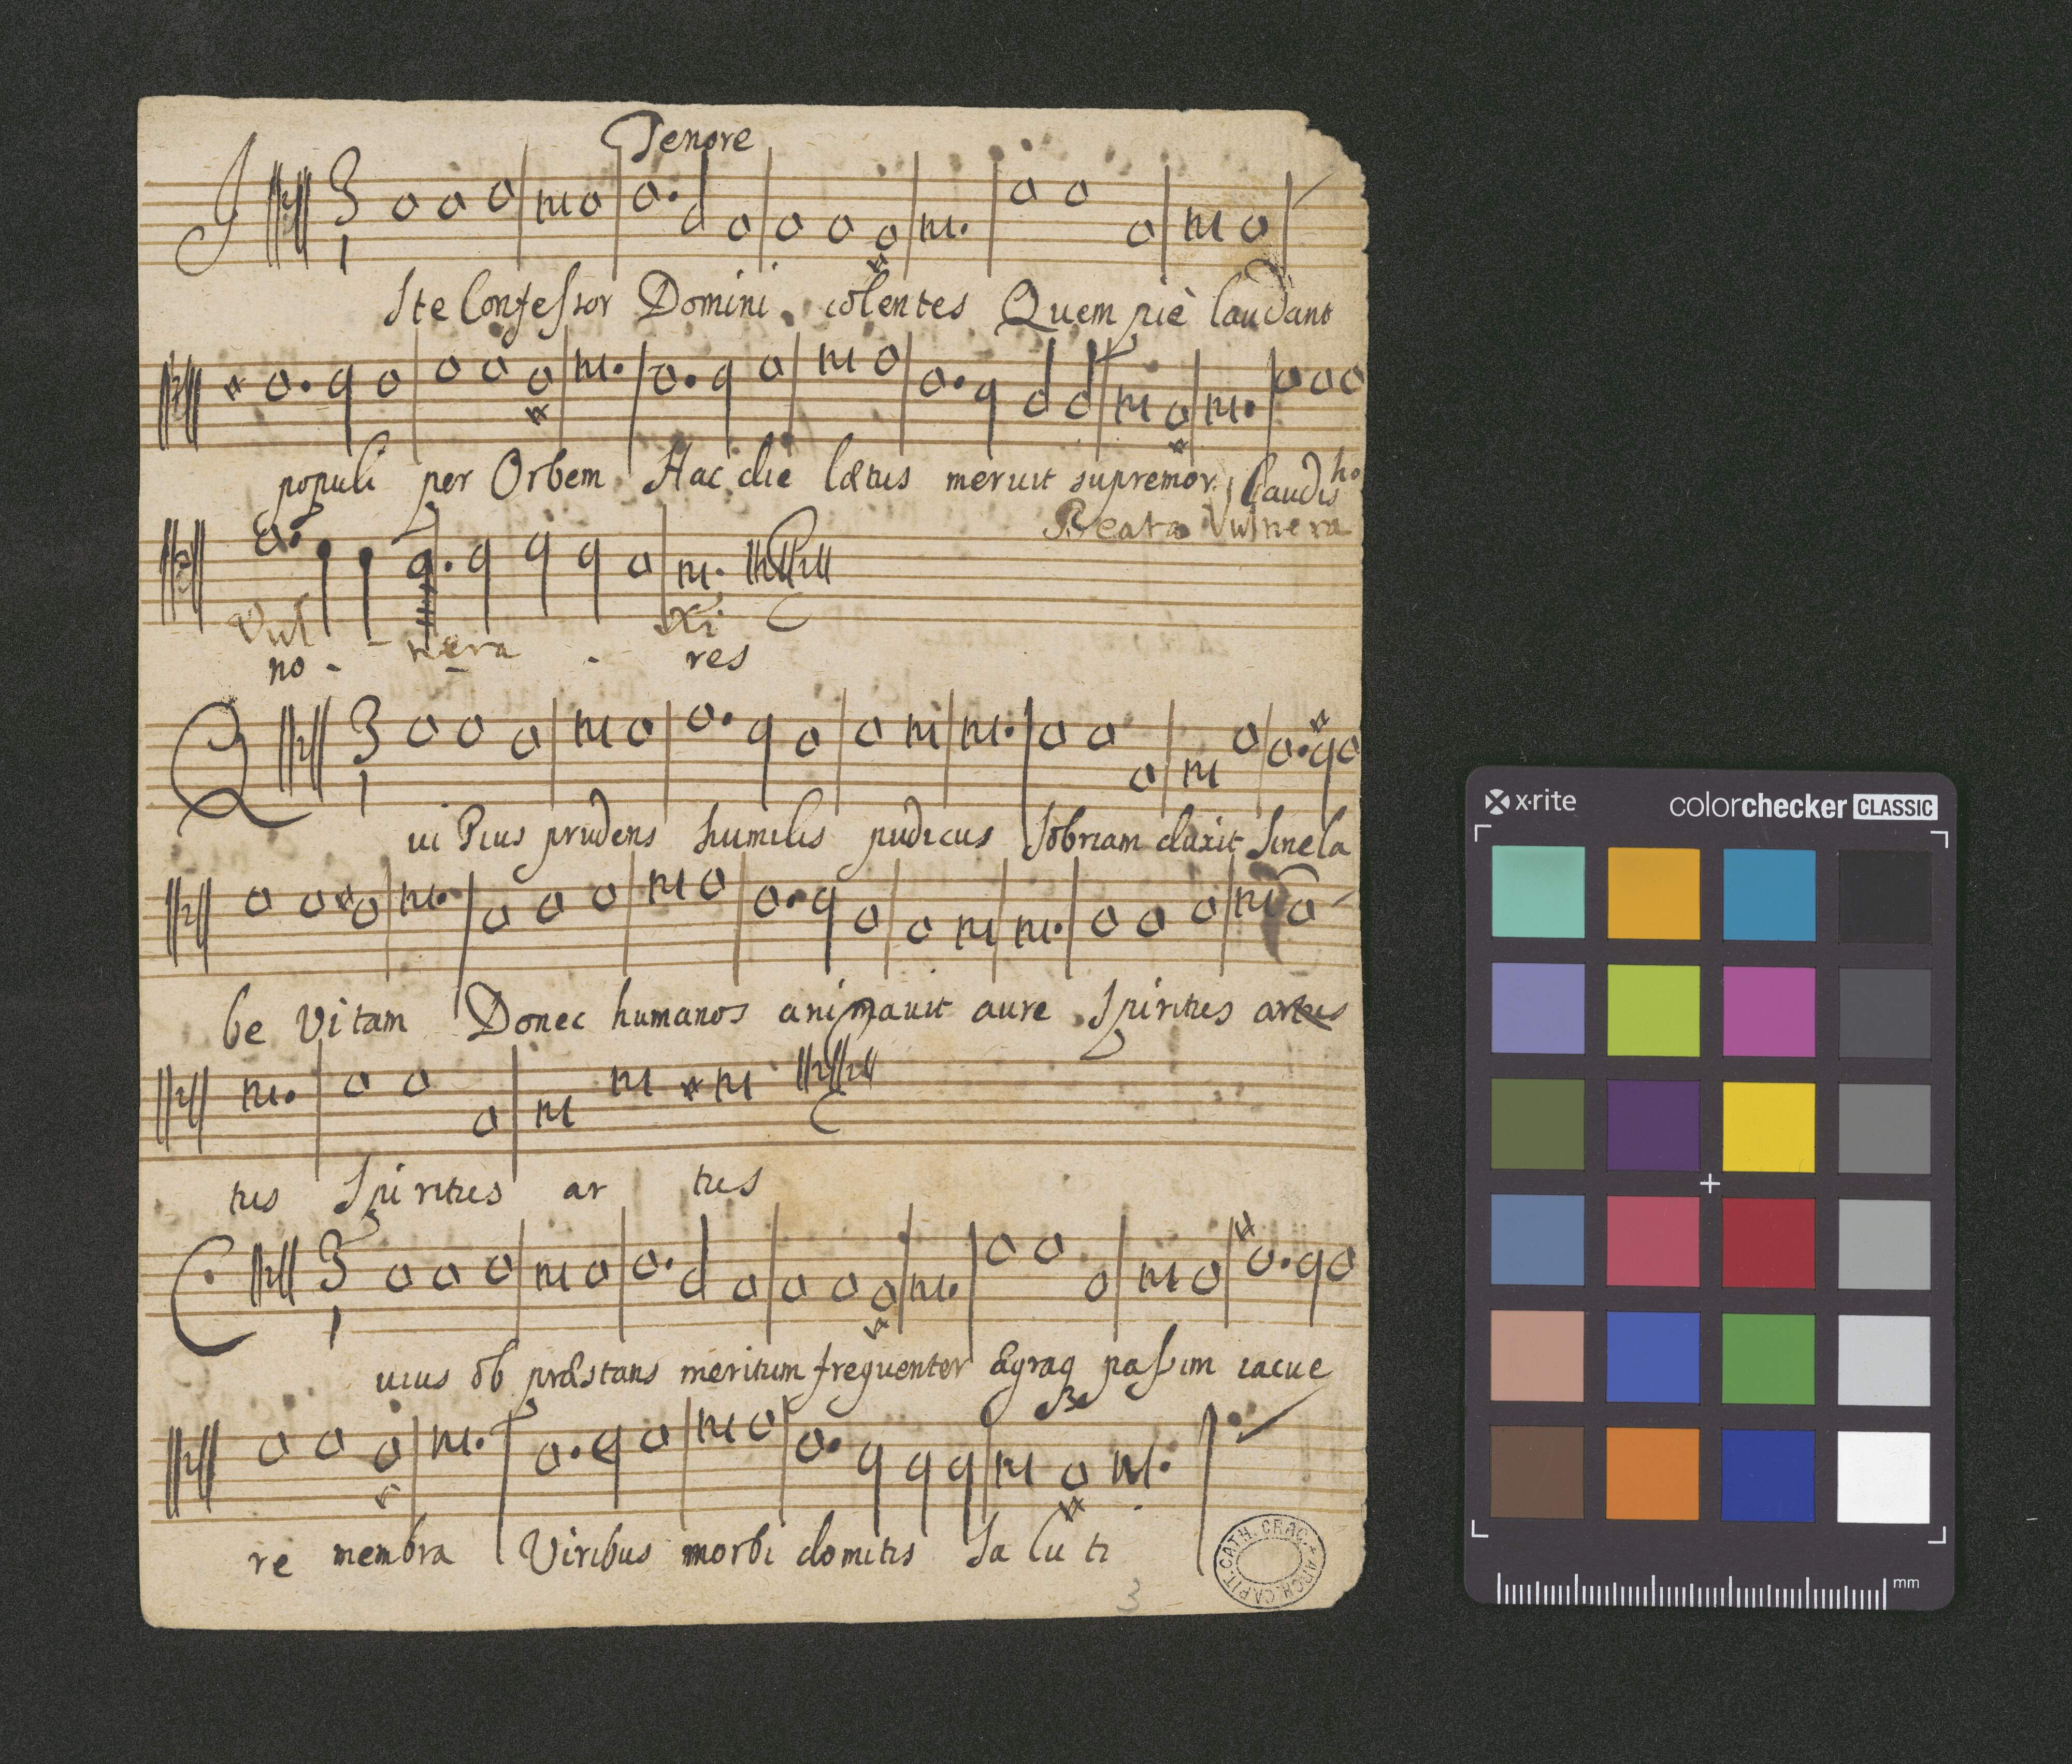 Tenore
Iste Confessor Domini colentes Quem piè laudant
populi per Orbem Hac die lætus meruit supremos Laudis ho
Beata Vulnera
Vul - nera Xi
no - - - res
Qui Pius prudens humilis pudicus Sobriam duxit Sine la
be Vitam Donec humanos animavit aure Spiritus artus
tus Spiritus ar tus
Cuius ob præstans meritum frequenter Ægraq passim iacue
re membra Viribus morbi domitis Salu ti
3
CATH. CRAC. ARCH. CAPIT.
x·rite colorchecker CLASSIC
mm